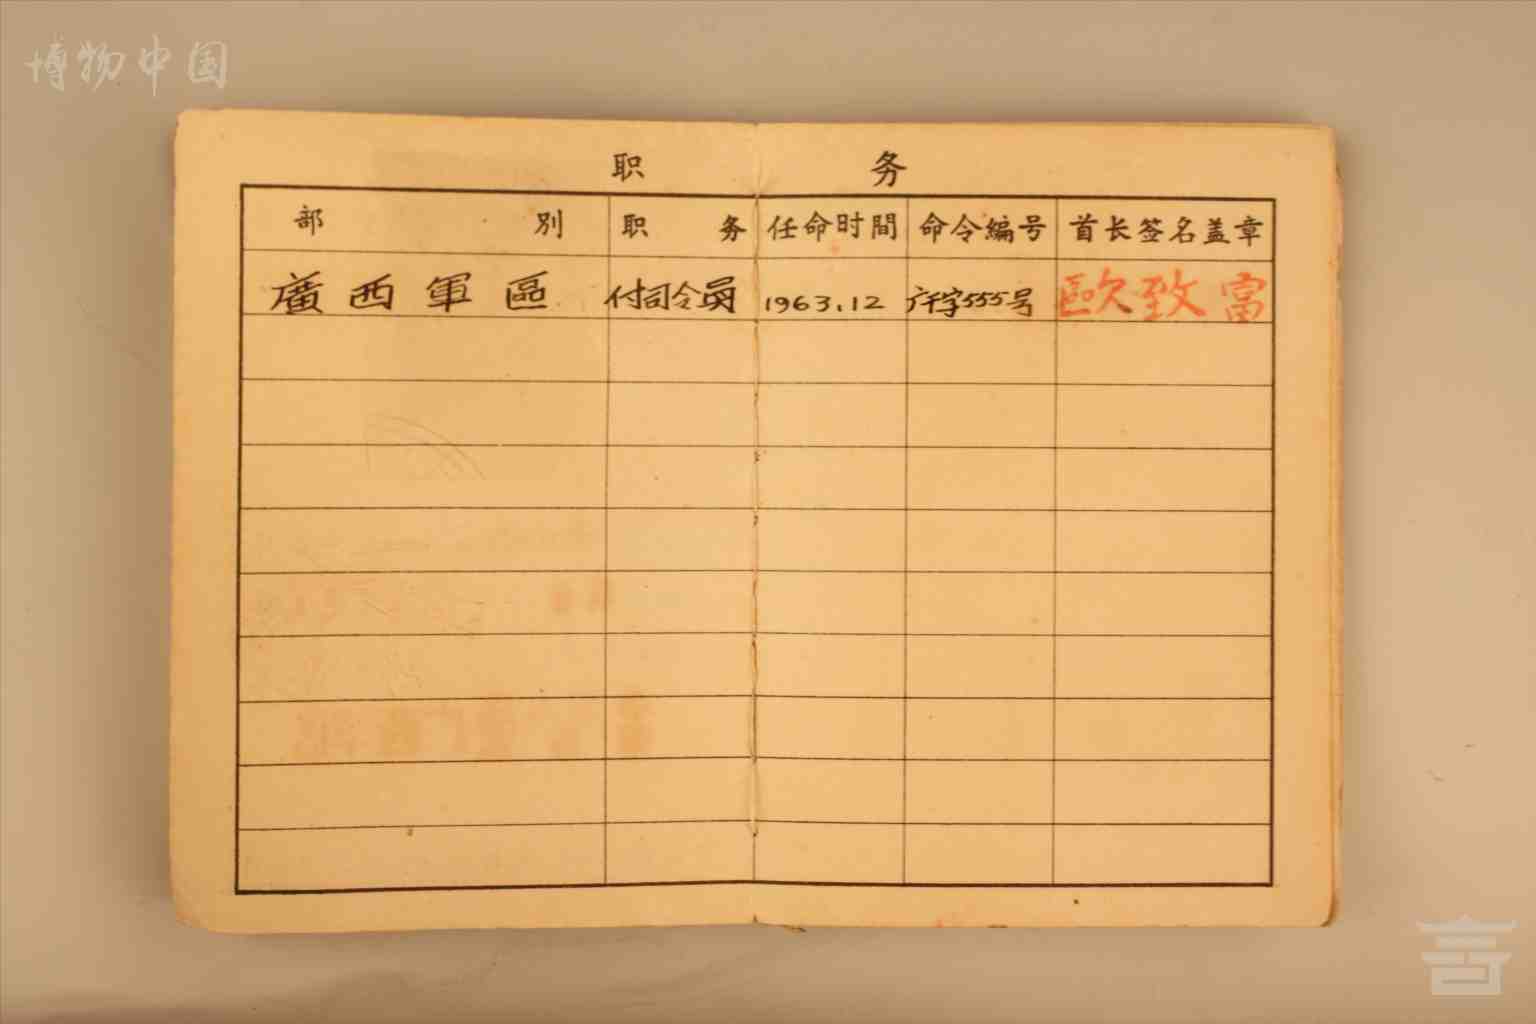 博物中国
职 务
部 别 职 务 任命时間 命令编号 首长签名盖章
廣西軍區 付司令员 1963.12 字555号 歐致富